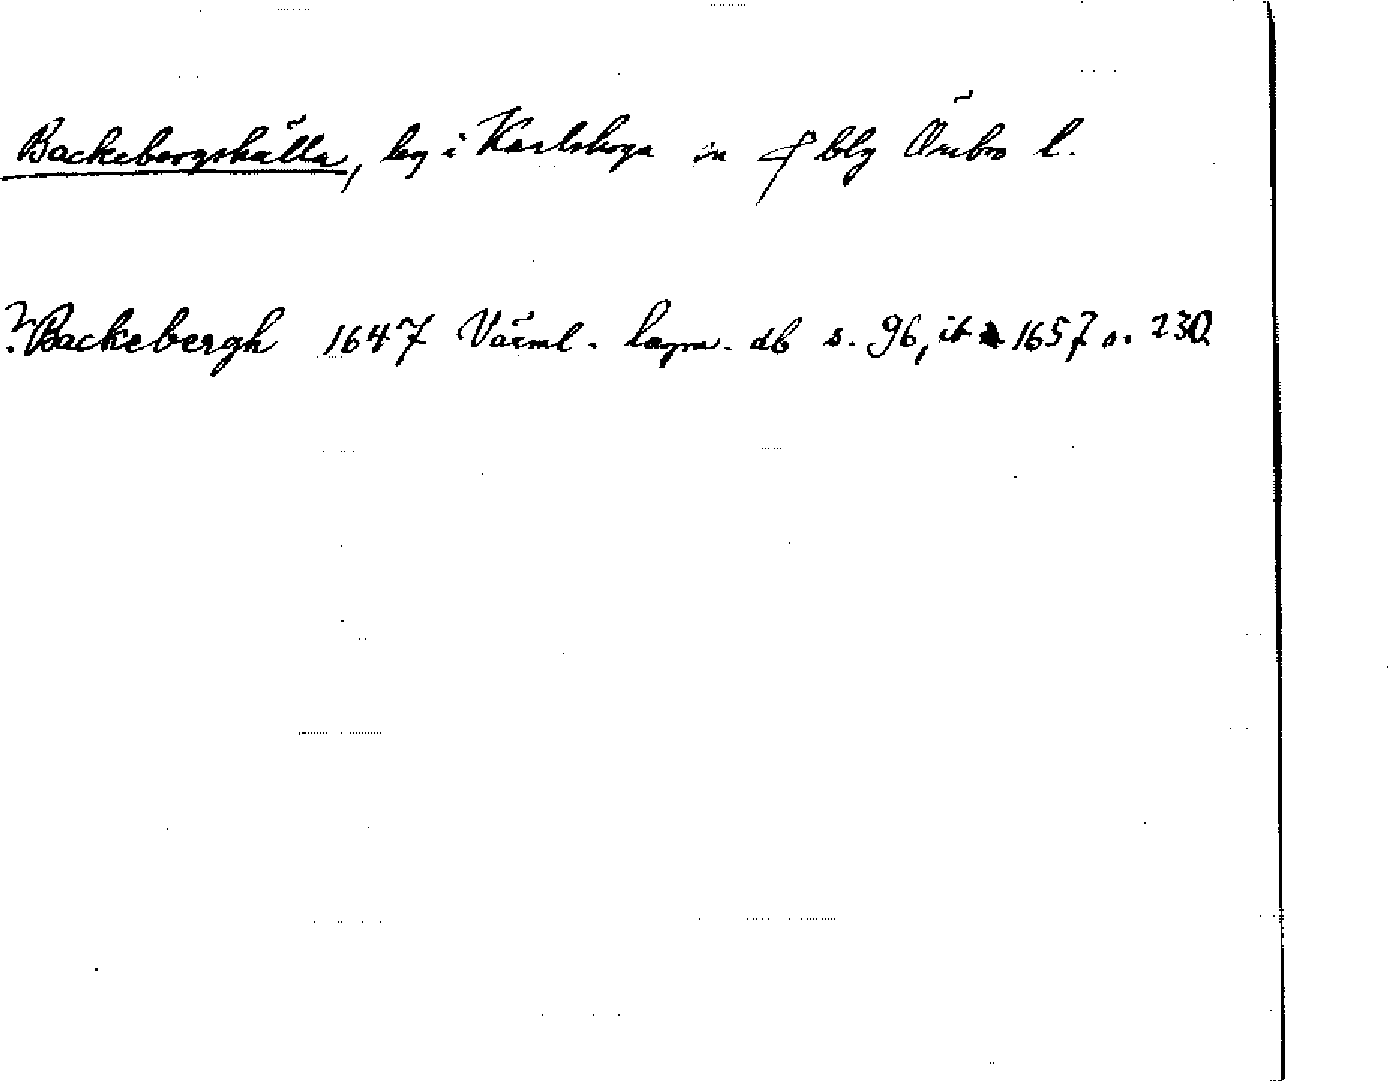 Backebergshälla, lög i Karlskoga sn blg Örebro l.
?Backebergh 1647 Värml. lagm. db s. 96, it 1657 s. 230